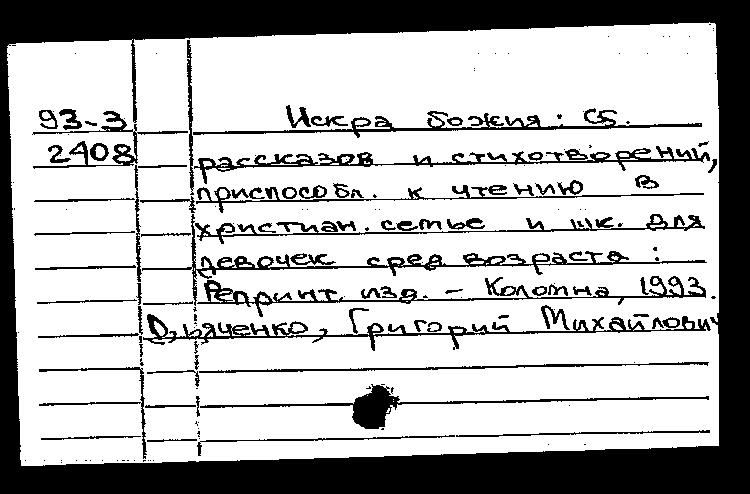 93-3 Искра божия: Сб.
2408 рассказов и стихотворений,
приспособл. к чтению в
христиан. семье и шк. для
девочек сред возраста:
Репринт. изд. - Коломна, 1993.
Дьяченко, Григорий Михайлович